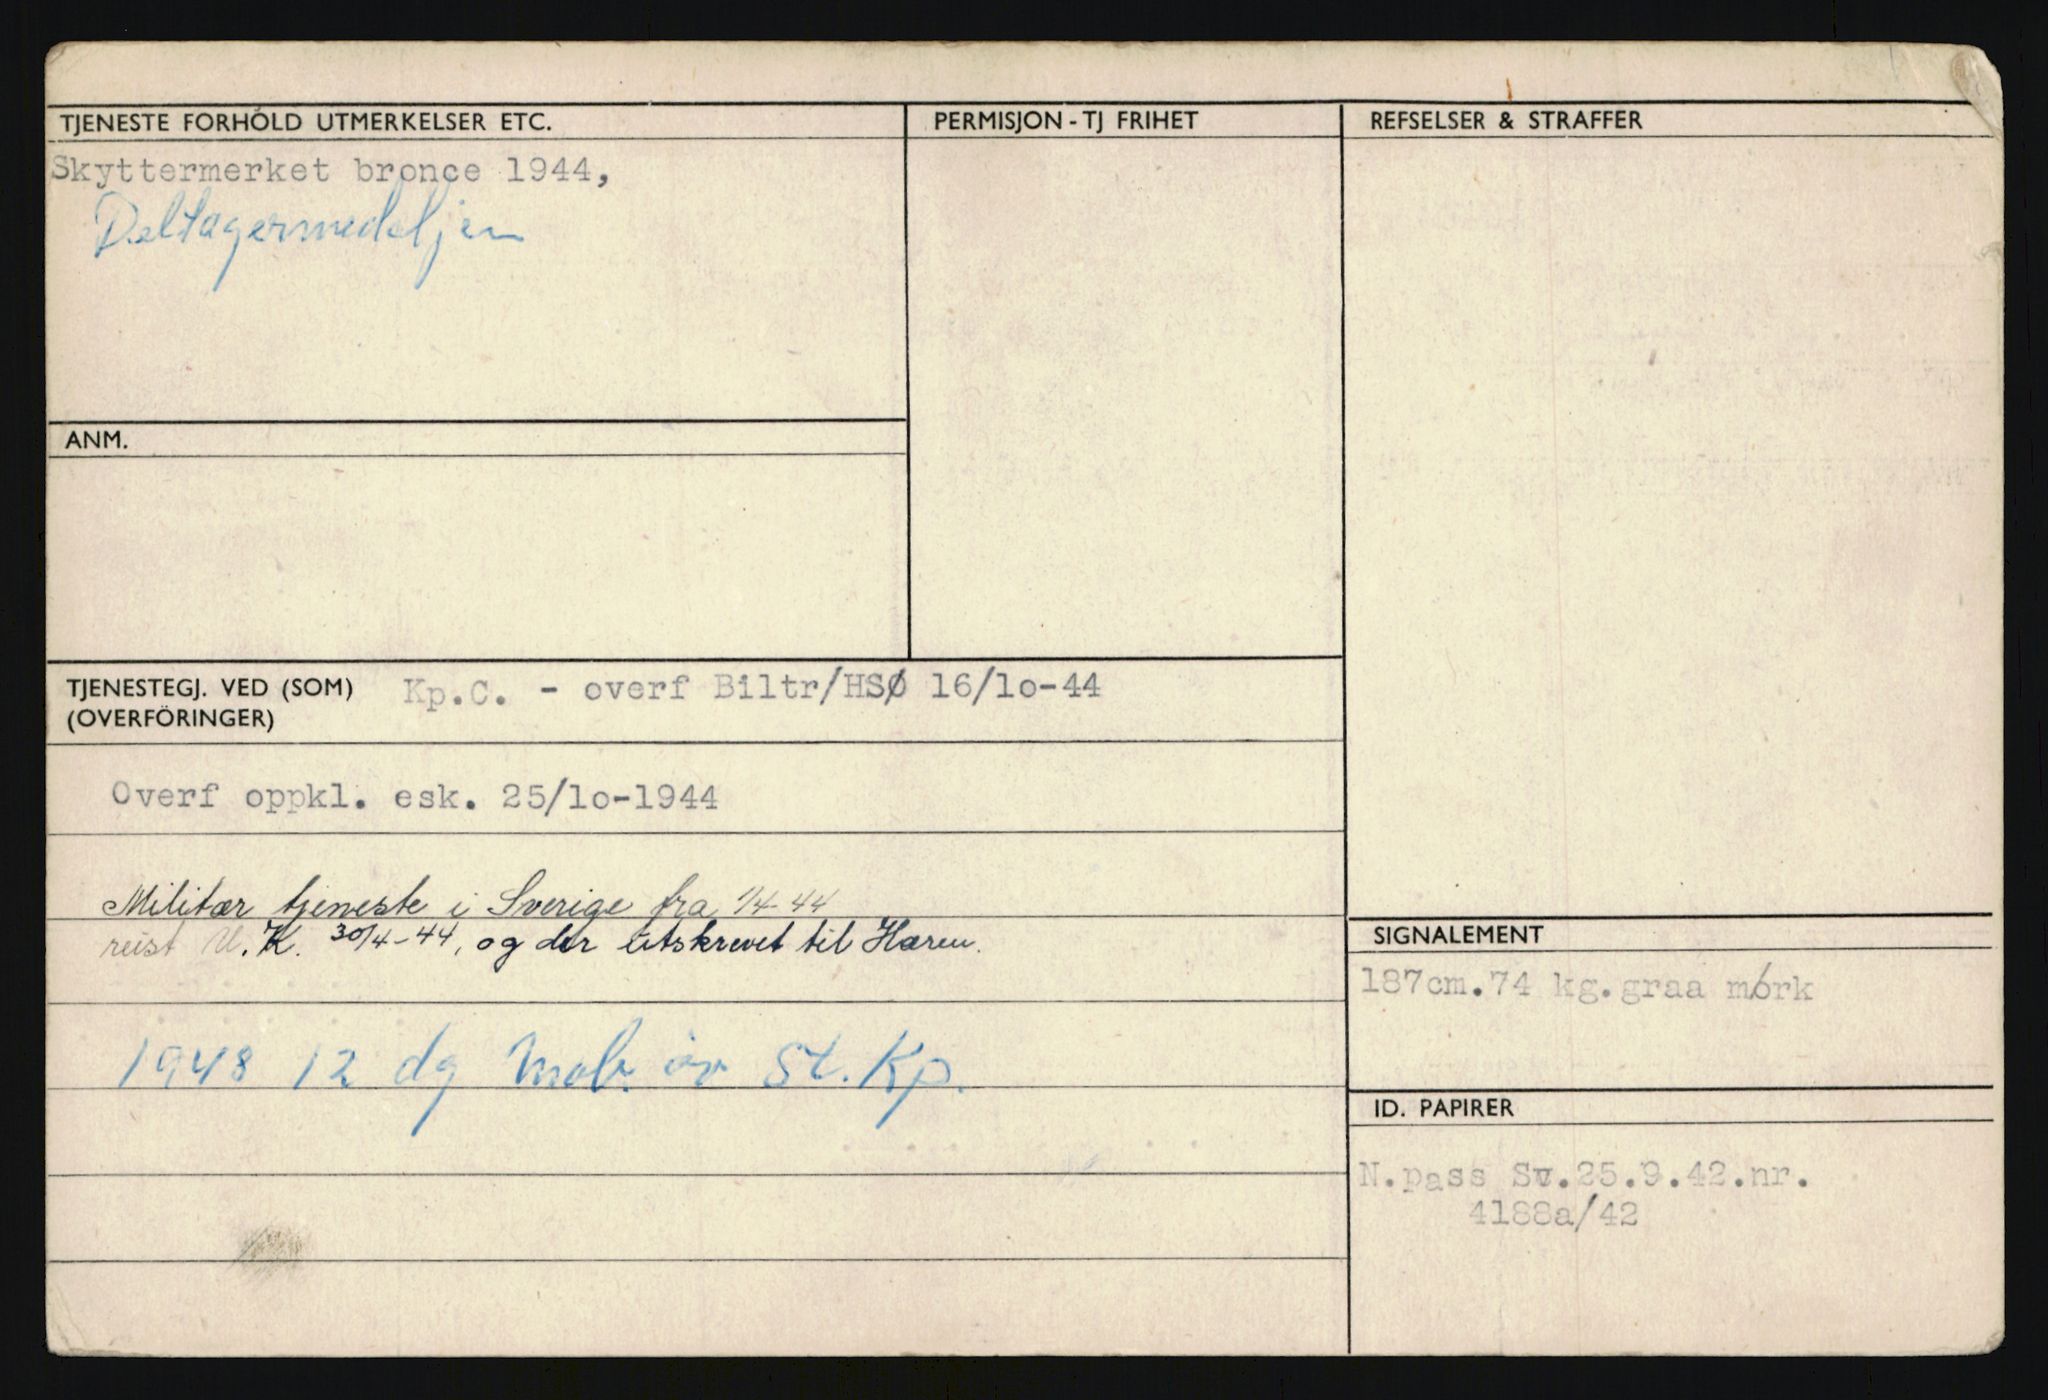 TJENESTE FORHÖLD UTMERKELSER ETC.
Skyttermerket bronce 1944,
Deltagermedaljen
ANM.
PERMISJON - TJ FRIHET
REFSELSER & STRAFFER
TJENESTEGJ. VED (SOM) Kp.C. - overf Biltr/HSØ 16/1o-44
(OVERFÖRINGER)
Overf oppkl. esk. 25/1o-1944
Militær tjeneste i Sverige fra 1/4-44
reist U.K. 30/4-44, og der utskrevet til Hæren.
1948 12 dg Mob. öv St. Kp.
SIGNALEMENT
187cm.74 kg.graa mórk
ID. PAPIRER
N.pass Sv.25.9.42.nr.
4188a/42